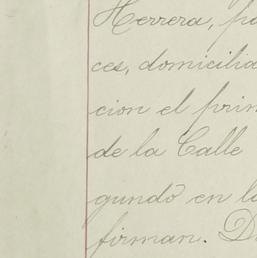 Herrera, pa
ces, domicilia
cion el prim
de la Calle
gundo en la
firman. D